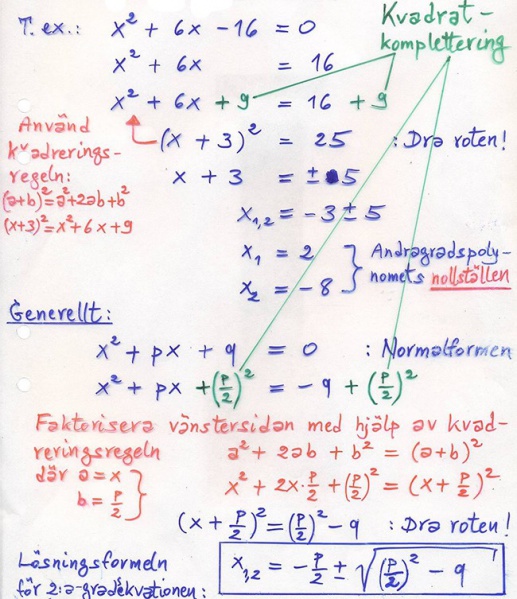 T.ex.: x² + 6x - 16 = 0
Kvadrat-
komplettering
x² + 6x = 16
x² + 6x + 9 = 16 + 9
Använd
kvadrerings-
regeln:
(a+b)²=a²+2ab+b²
(x+3)²=x²+6x+9
(x + 3)² = 25 : Dra roten!
x + 3 = ± 5
x₁,₂ = -3 ± 5
x₁ = 2
x₂ = -8
Andragradspoly-
nomets nollställen
Generellt:
x² + px + q = 0 : Normalformen
x² + px + (p/2)² = -q + (p/2)²
Faktorisera vänstersidan med hjälp av kvad-
reringsregeln a² + 2ab + b² = (a+b)²
där a = x
b = p/2
x² + 2x·p/2 + (p/2)² = (x + p/2)²
(x + p/2)² = (p/2)² - q : Dra roten!
Lösningsformeln
för 2:a-gradsekvationen:
x₁,₂ = -p/2 ± √((p/2)² - q)